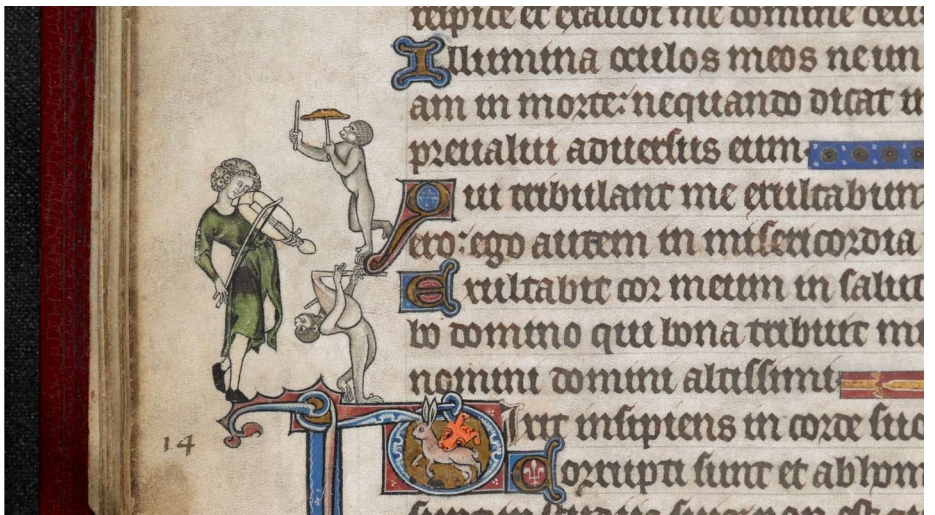 respice et exaudi me domine deus
Illumina oculos meos ne un
am in morte: nequando dicat in
preualui aduersus eum
Qui tribulant me exultabun
ero: ego autem in misericordia
Exultabit cor meum in salut
bo domino qui bona tribuit mi
nomini domini altissimi
14
Dixit insipiens in corde suo
Corrupti sunt et abhom